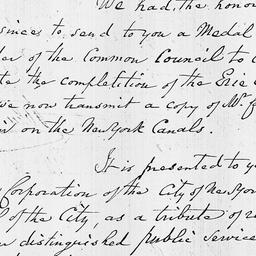 We had, the hono
sinces to, send to you a Medal
der of the Common Council to C
te the completion of the Erie
we now transmit a copy of Mr. 
on the New York Canals.
It is presented to yo
Corporation of the City of New Yor
of the City, as a tribute of re
distinguished public service